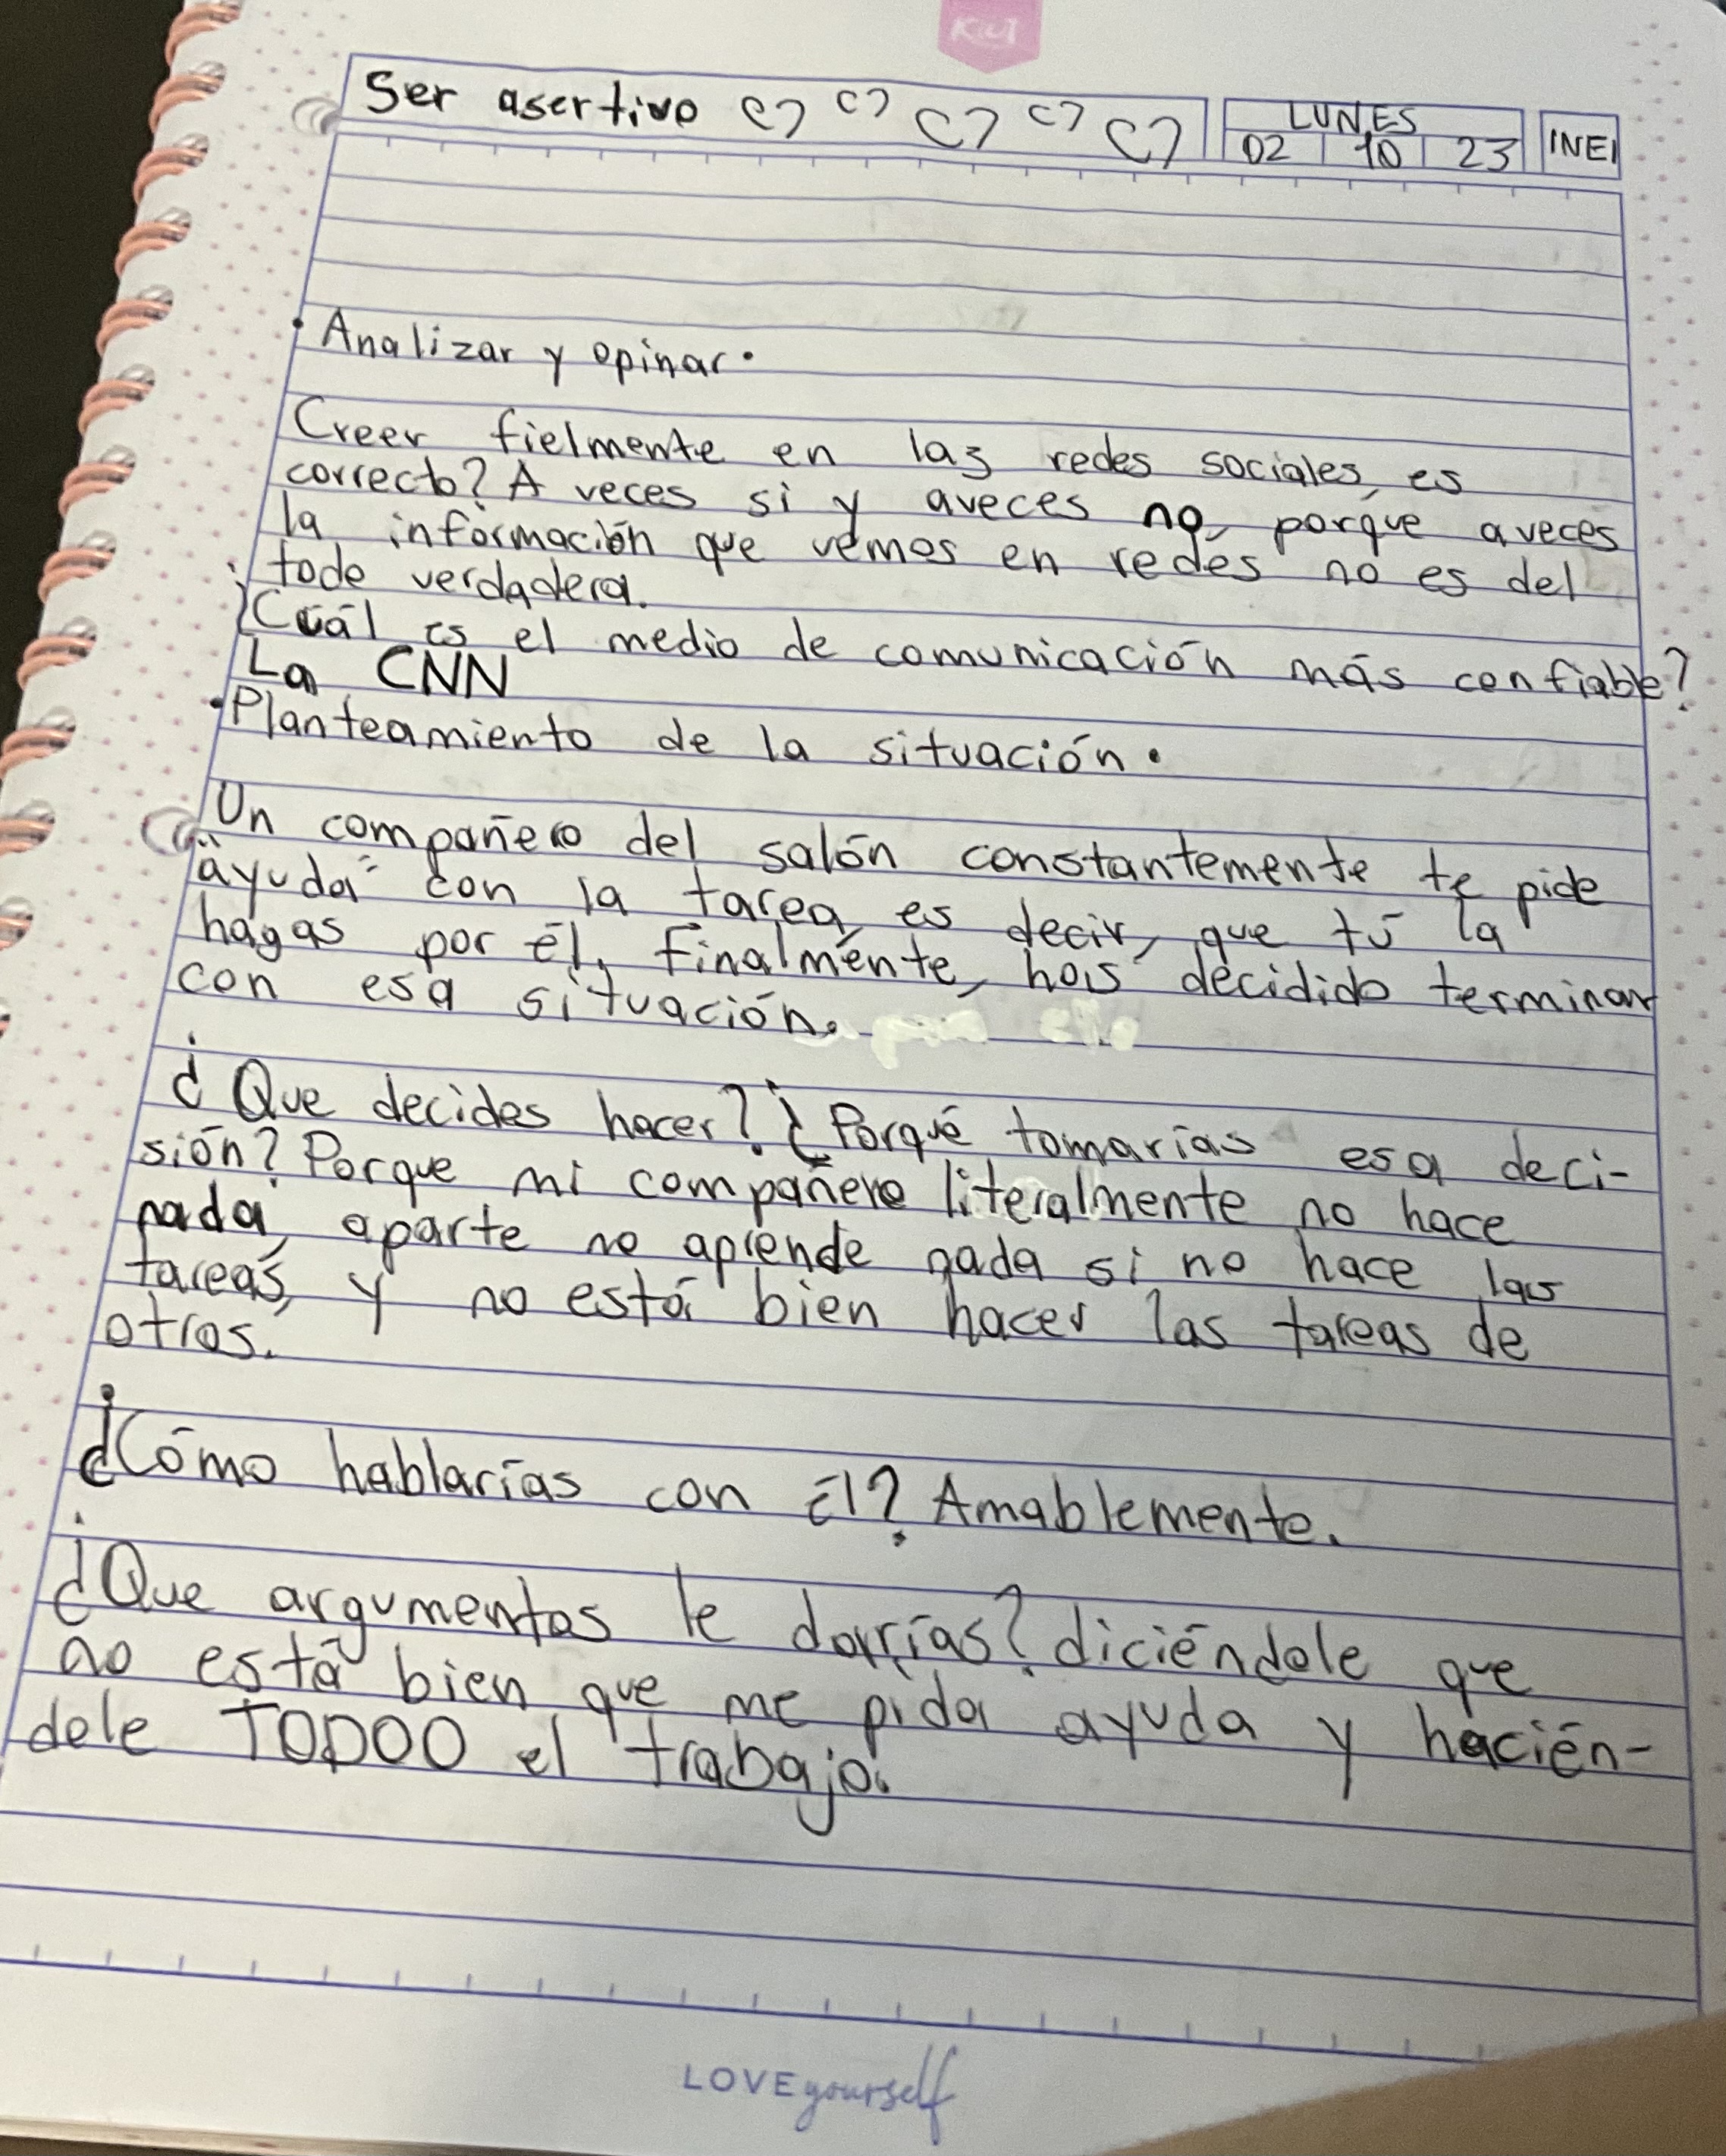 KIUT
Ser asertivo
LUNES
02 10 23
INEI
• Analizar y opinar •
Creer fielmente en las redes sociales, es
correcto? A veces si y aveces no, porque aveces
la información que vemos en redes no es del
todo verdadera.
¿Cuál es el medio de comunicación más confiable?
La CNN
• Planteamiento de la situación •
Un compañero del salón constantemente te pide
"ayuda" con la tarea, es decir, que tú la
hagas por él. Finalmente, has decidido terminar
con esa situación.
¿Que decides hacer? ¿Porqué tomarías esa deci-
sión? Porque mi compañero literalmente no hace
nada, aparte no aprende nada si no hace las
tareas, y no está bien hacer las tareas de
otros.
¿Cómo hablarías con Él? Amablemente.
¿Que argumentos le darías? diciéndole que
no está bien que me pida ayuda y hacién-
dele TODOO el trabajo.
LOVE yourself